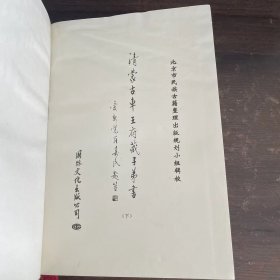 北京市民族古籍整理出版规划小组辑校
清蒙古车王府藏子弟书
(下)
国际文化出版公司